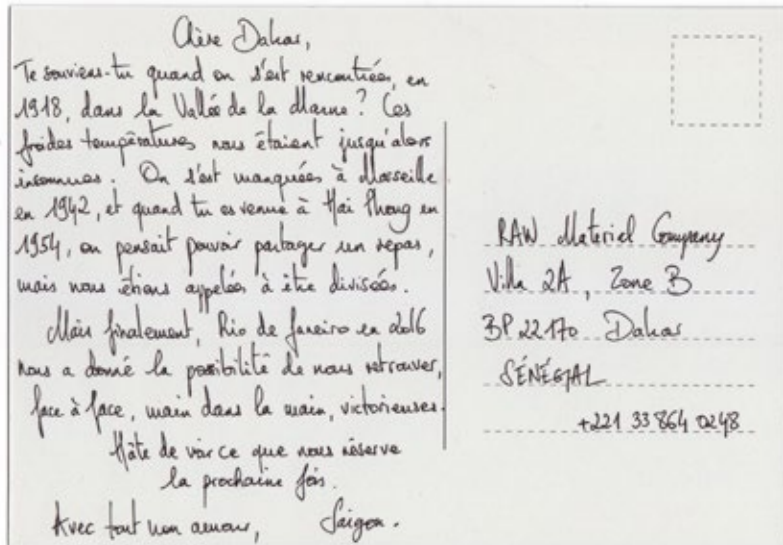 Chère Dakar,
Te souviens-tu quand on s'est rencontrées, en
1918, dans la Vallée de la Marne ? Ces
froides températures nous étaient jusqu'alors
inconnues. On s'est manquées à Marseille
en 1942, et quand tu es venue à Hai Phong en
1954, on pensait pouvoir partager un repas,
mais nous étions appelées à être divisées.
Mais finalement, Rio de Janeiro en 2016
nous a donné la possibilité de nous retrouver,
face à face, main dans la main, victorieuses.
Hâte de voir ce que nous réserve
la prochaine fois.
Avec tout mon amour, Saigon.
RAW Material Company
Villa 2A, Zone B
BP 22170 Dakar
SÉNÉGAL
+221 33 864 0248